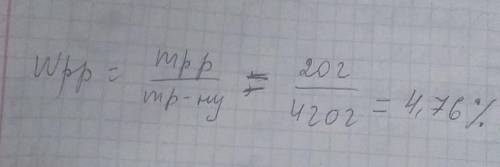 Wрр = mрр / mр-ну = 20г / 420г = 4,76 %